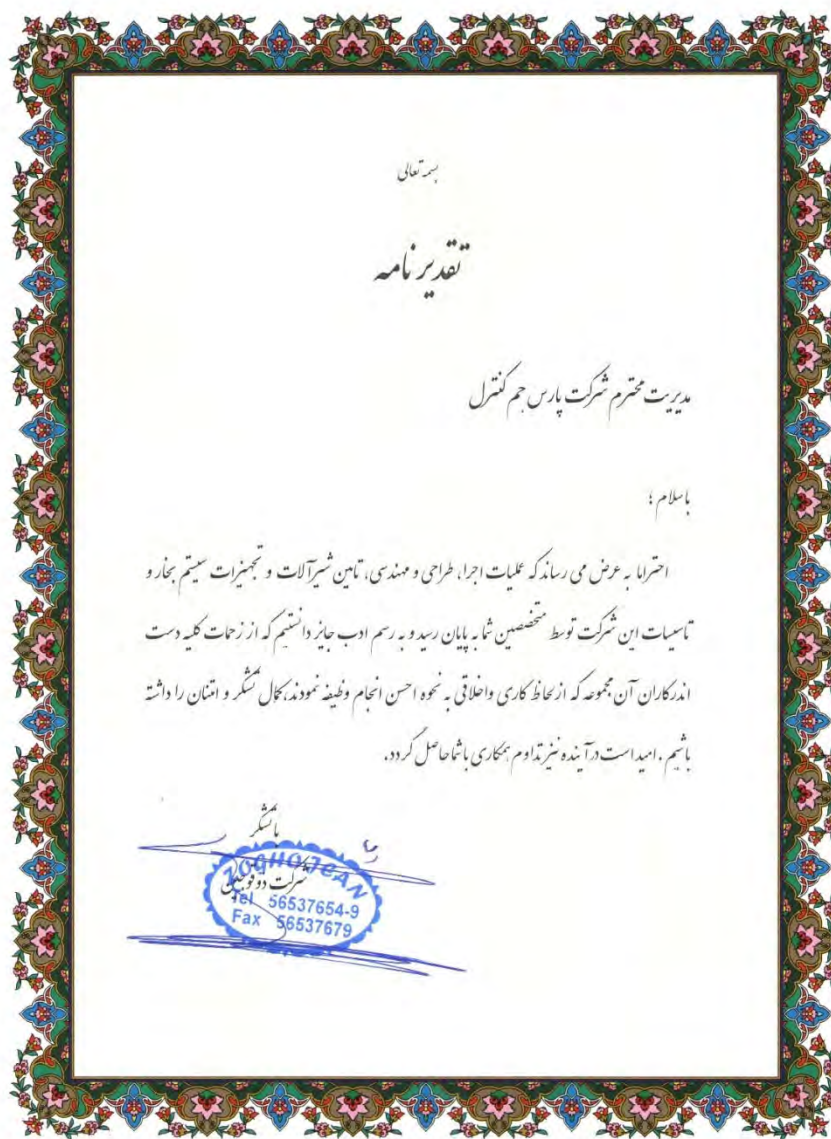 بسمه تعالی
تقدیر نامه
مدیریت محترم شرکت پارس جم کنترل
باسلام ؛
احتراما به عرض می رساند که عملیات اجرا، طراحی و مهندسی، تامین شیرآلات و تجهیزات سیستم بخار و
تاسیسات این شرکت توسط متخصصین شما به پایان رسید و به رسم ادب جایز دانستیم که از زحمات کلیه دست
اندرکاران آن مجموعه که از لحاظ کاری واخلاقی به نحوه احسن انجام وظیفه نمودند، کمال تشکر و امتنان را داشته
باشیم . امیداست درآینده نیز تداوم همکاری با شما حاصل گردد.
باتشکر
شرکت
ZOGHOJEAN
Tel 56537654-9
Fax 56537679